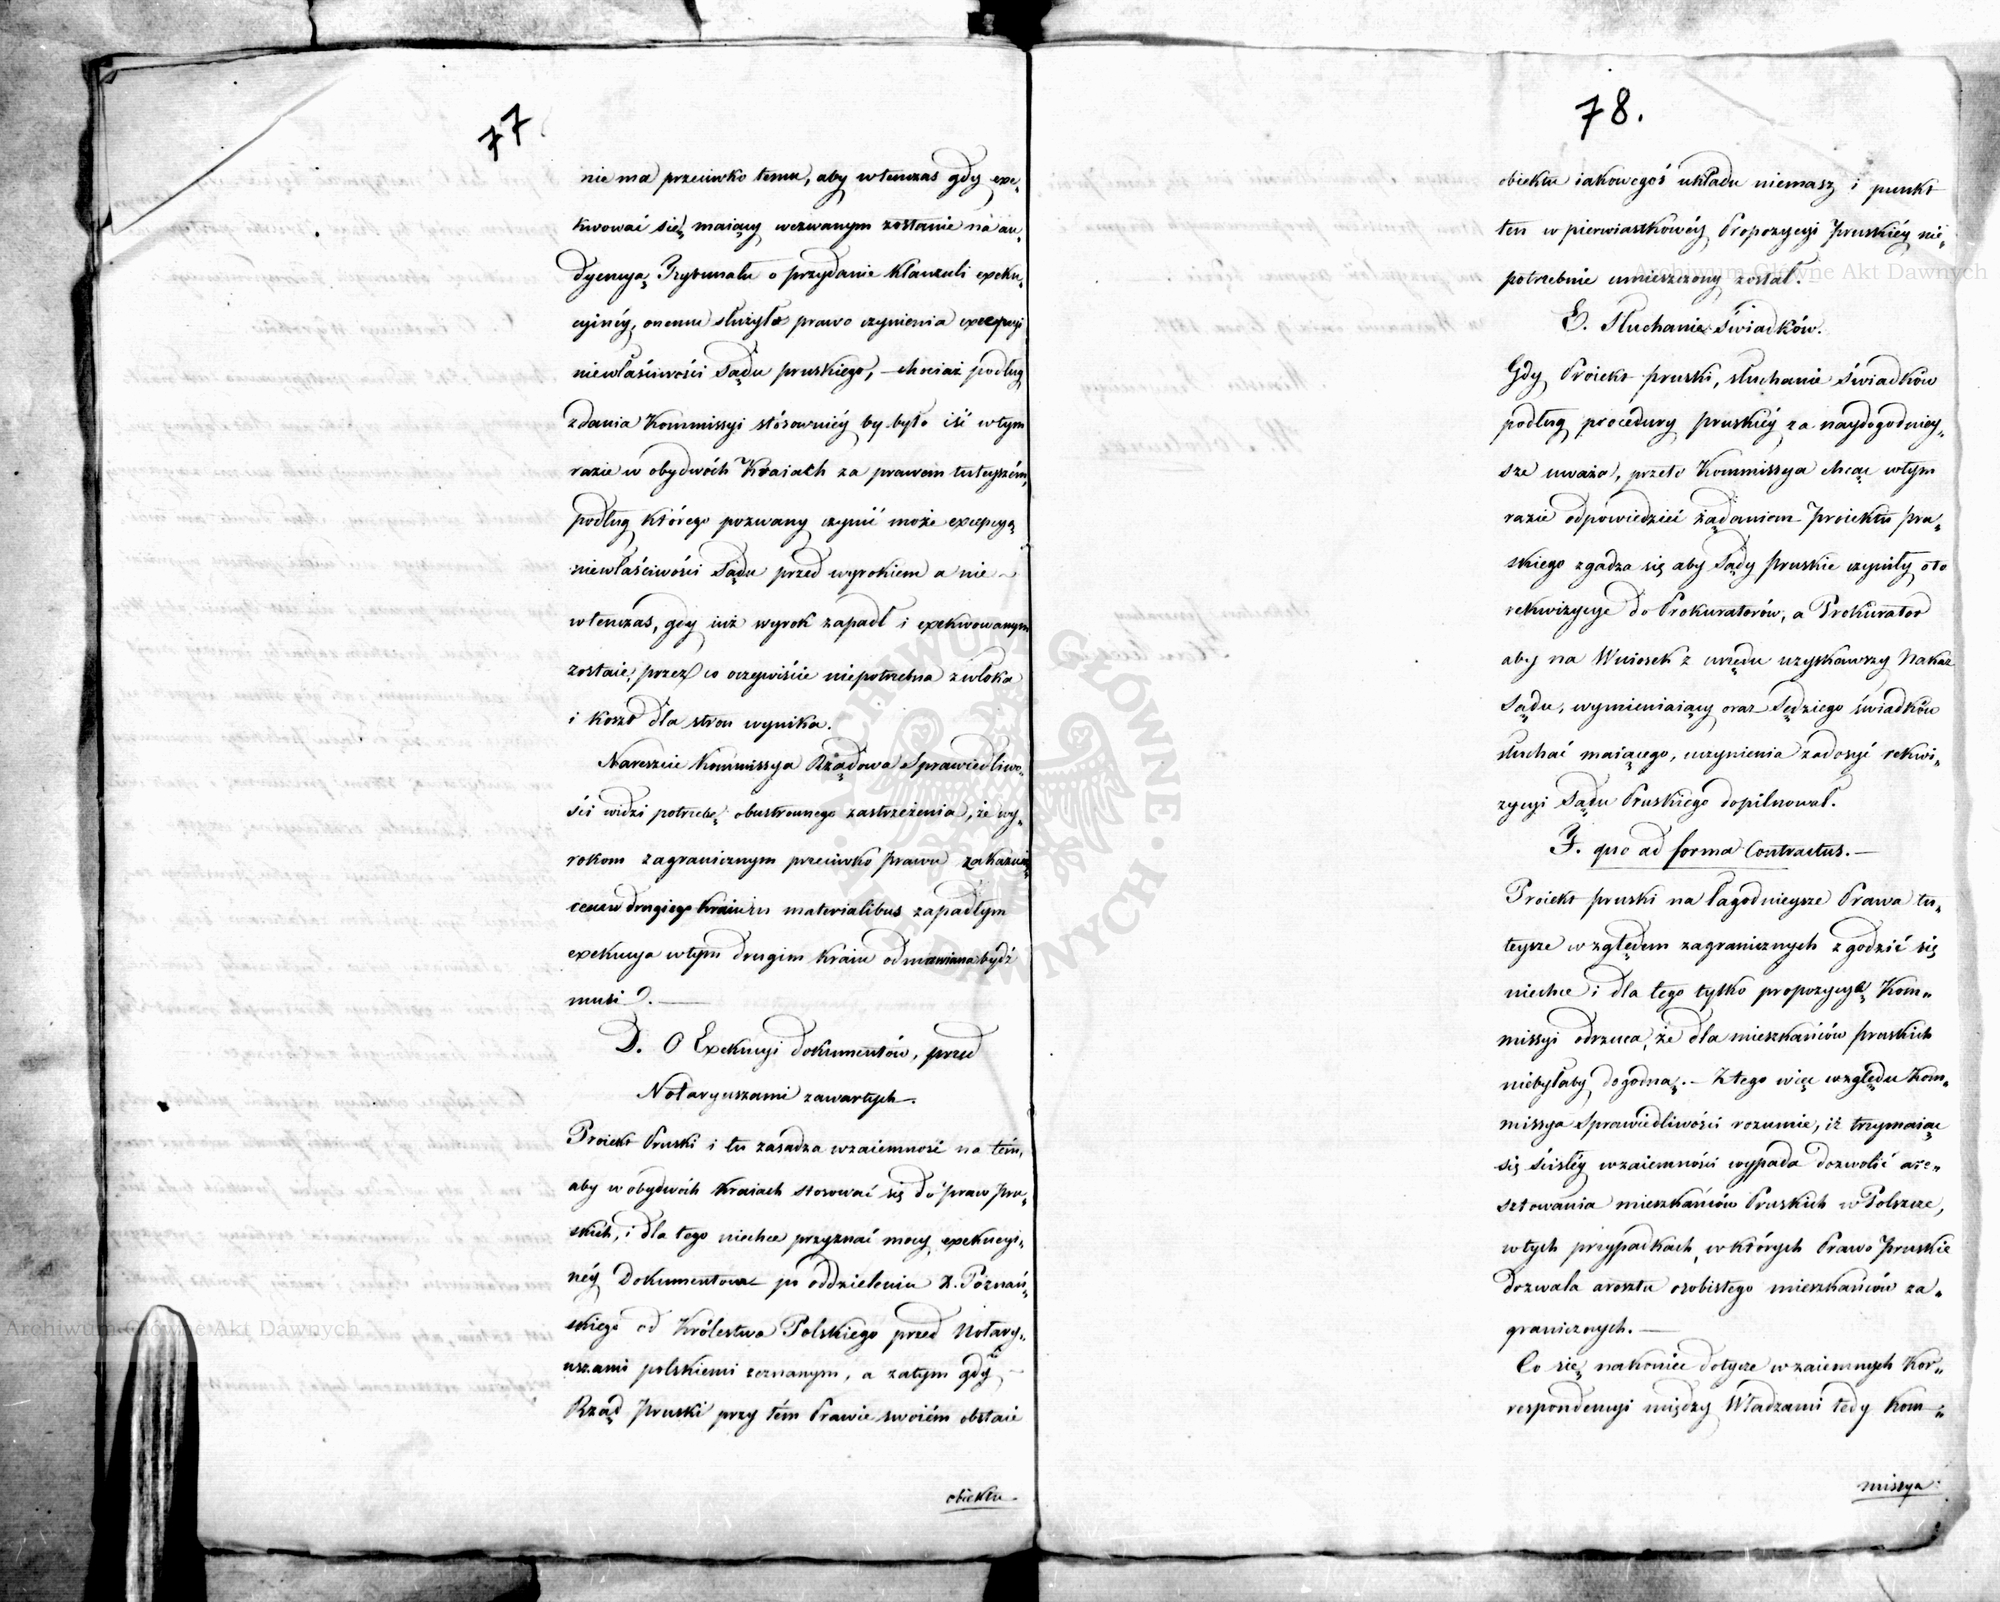 77
nie ma przeciwko temu, aby wtenczas gdy exe-
kwować się maiący wezwanym zostanie na au-
dyencyą Trybunału o przydanie klauzuli exeku-
cyinéy, onemu służyło prawo czynienia excepcyi
niewłaściwości Sądu pruskiego, - chociaż podług
zdania Kommissyi stósowniéy by było iść w tym
razie w obydwóch Kraiach za prawem tuteyszém,
podług którego pozwany czynić może excepcyą
niewłaściwości Sądu przed wyrokiem a nie -
wtenczas, gdy iuż wyrok zapadł i exekwowanym
zostaie, przez co oczywiście niepotrzebna zwłoka
i koszt dla stron wynika.
Nareszcie Kommissya Rządowa Sprawiedliwo-
ści widzi potrzebę obustronnego zastrzeżenia, że wy-
rokom zagranicznym przeciwko prawu zakazuią-
cemu drugiego kraiu in materialibus zapadłym
exekucya w tym drugim kraiu odmawiana bydź
musi. -
D. O Exekucyi dokumentów, przed
Notaryuszami zawartych.
Proiekt Pruski i tu zasadza wzaiemność na tém,
aby w obydwóch kraiach stosować się do praw Pru-
skich, i dla tego niechce przyznać mocy exekucyi-
néy Dokumentom po oddzieleniu X. Poznań-
skiego od Królestwa Polskiego przed Notary-
uszami polskiemi zeznanym, a zatym gdy -
Rząd Pruski przy tém Prawie swoiém obstaie
obiektu
78.
obiektu iakowegoś układu niemasz i punkt
ten w pierwiastkowéy Propozycyi Pruskiéy nie-
potrzebnie umieszczony został.
E. Słuchanie Świadków.
Gdy Proiekt pruski, słuchanie świadków
podług procedury pruskiéy za naydogodniey-
sze uważa, przeto Kommissya chcąc w tym
razie odpowiedzieć żądaniom Proiektu pru-
skiego zgadza się aby Sądy Pruskie czyniły o to
rekwizycye do Prokuratorów, a Prokurator
aby na Wniosek z urzędu uzyskawszy Nakaz
Sądu, wymieniaiący oraz Sędziego świadków
słuchać maiącego, uczynienia zadosyć rekwi-
zycyi Sądu Pruskiego dopilnował.
F. quo ad forma Contractus. -
Proiekt pruski na łagodnieysze Prawa tu-
teysze względem zagranicznych zgodzić się
niechce i dla tego tylko propozycyą Kom-
missyi odrzuca, że dla mieszkańców Pruskich
niebyłaby dogodną. - Z tego więc względu Kom-
missya Sprawiedliwości rozumie, iż trzymaiąc
się ścisłéy wzaiemności wypada dozwolić are-
sztowania mieszkańców Pruskich w Polszcze,
w tych przypadkach, w których Prawo Pruskie
dozwala aresztu osobistego mieszkańców za-
granicznych. -
Co się nakoniec dotycze wzaiemnych Kor-
respondencyi między Władzami tedy Kom-
missya
Archiwum Główne Akt Dawnych
Archiwum Główne Akt Dawnych
ARCHIWUM GŁÓWNE AKT DAWNYCH